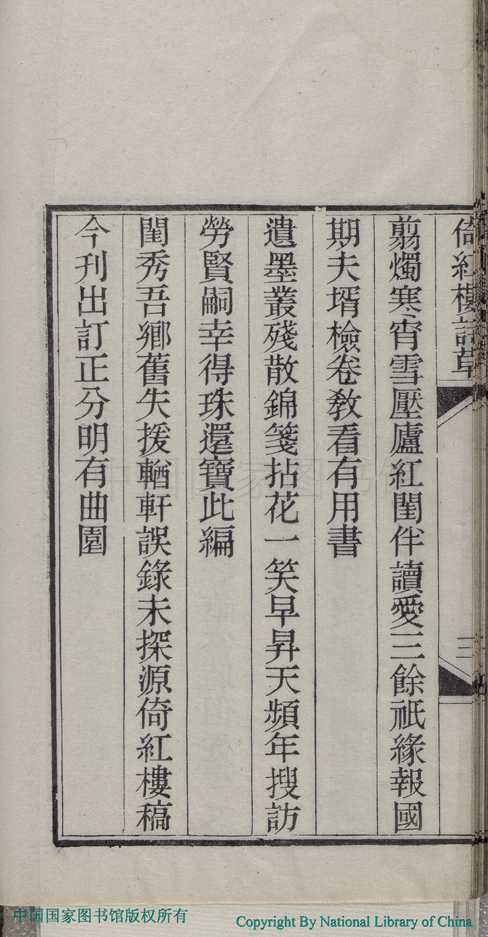 倚紅樓詩草
三
翦燭寒宵雪壓廬紅閨伴讀愛三餘祇緣報國
期夫壻檢卷敎看有用書
遺墨叢殘散錦箋拈花一笑早昇天頻年搜訪
勞賢嗣幸得珠還寶此編
閨秀吾鄉舊失援輶軒誤錄未探源倚紅樓稿
今刊出訂正分明有曲園
中国国家图书馆版权所有
Copyright By National Library of China